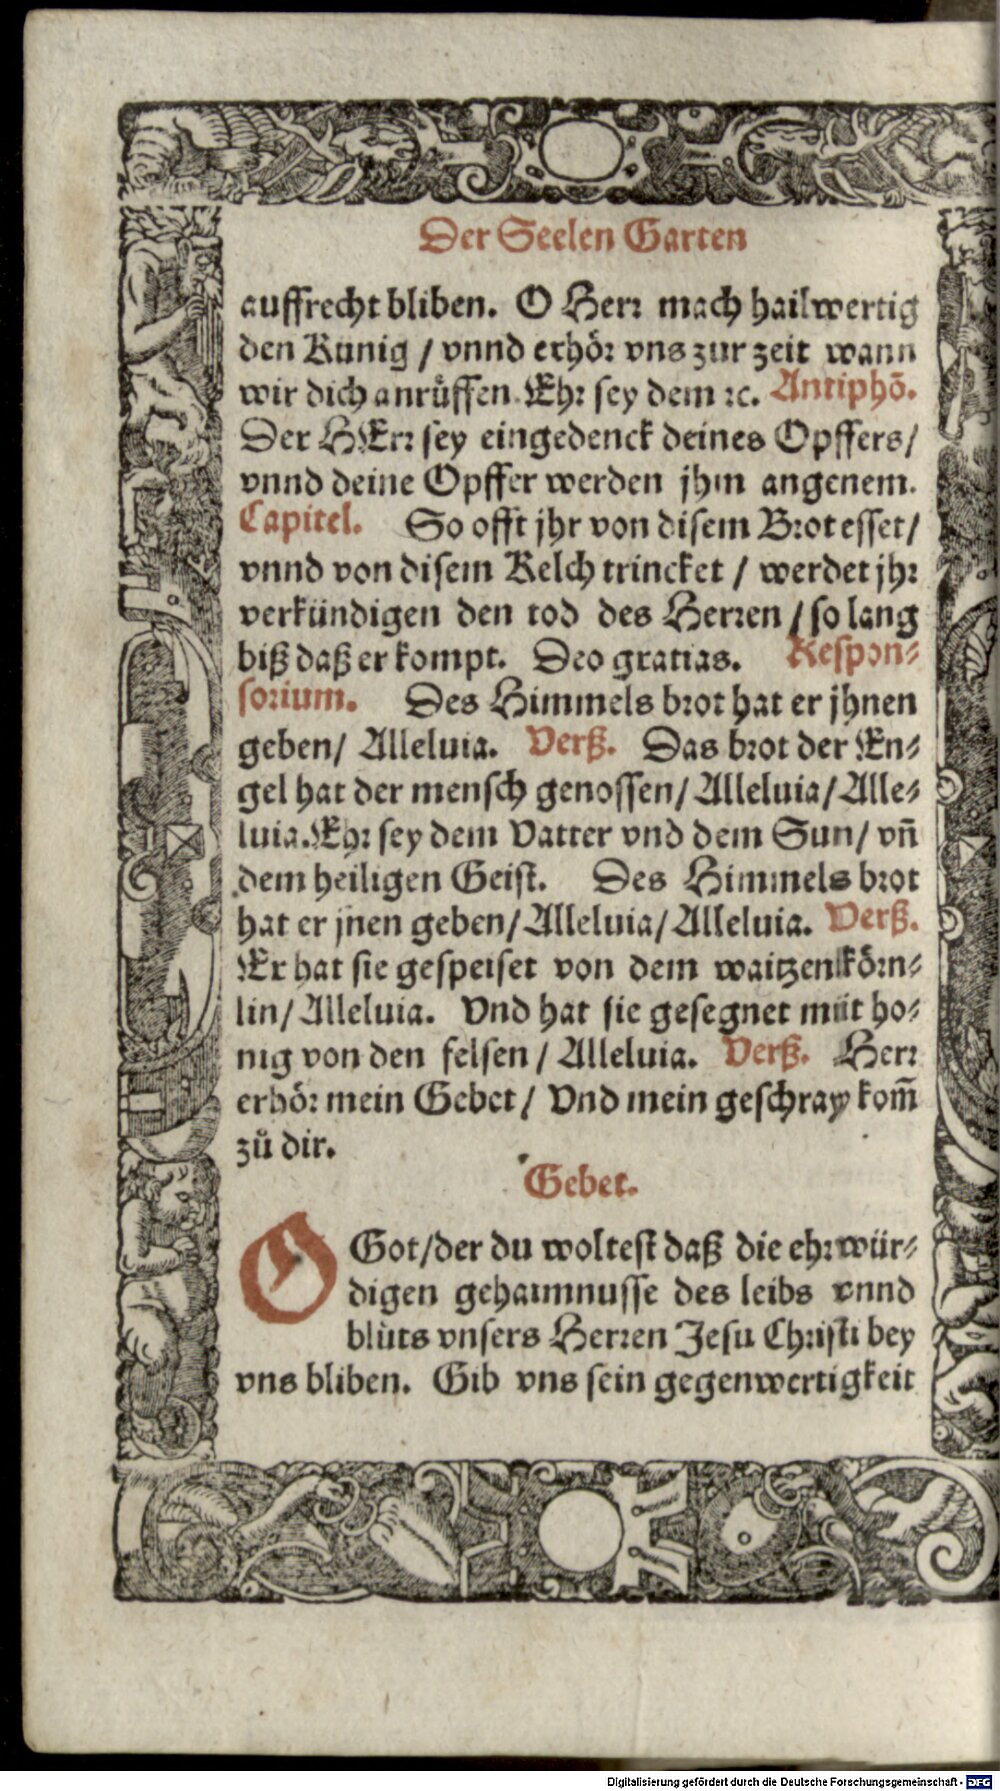 Der Seelen Garten
auffrecht bliben. O Herr mach hailwertig
den Kunig / vnnd erhör vns zur zeit wann
wir dich anrůffen. Ehr sey dem ꝛc. Antiphō.
Der HErr sey eingedenck deines Opffers/
vnnd deine Opffer werden jhm angenem.
Capitel. So offt jhr von disem Brot esset/
vnnd von disem Kelch trincket / werdet jhr
verkündigen den tod des Herren / so lang
biß daß er kompt. Deo gratias. Respon⸗
sorium. Des Himmels brot hat er jhnen
geben/ Alleluia. Verß. Das brot der En⸗
gel hat der mensch genossen/ Alleluia/ Alle⸗
luia. Ehr sey dem Vatter vnd dem Sun/ vñ
dem heiligen Geist. Des Himmels brot
hat er jnen geben/ Alleluia/ Alleluia. Verß.
Er hat sie gespeiset von dem waitzenkörn⸗
lin/ Alleluia. Vnd hat sie gesegnet mit ho⸗
nig von den felsen / Alleluia. Verß. Herr
erhör mein Gebet / Vnd mein geschray kom̄
zů dir.
Gebet.
O Got/der du woltest daß die ehrwür⸗
digen gehaimnusse des leibs vnnd
blůts vnsers Herren Jesu Christi bey
vns bliben. Gib vns sein gegenwertigkeit
Digitalisierung gefördert durch die Deutsche Forschungsgemeinschaft - DFG